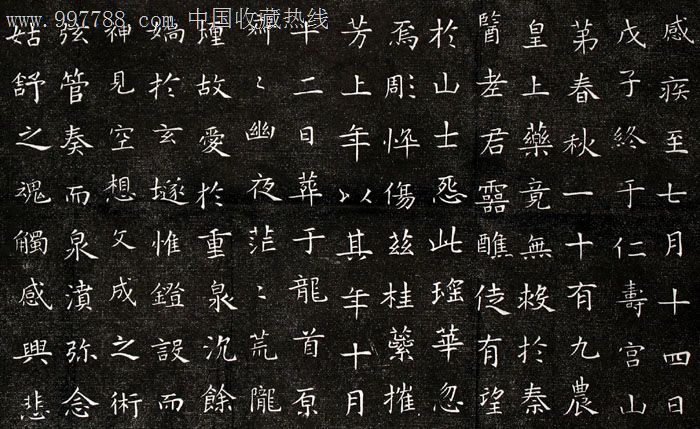 www.997788.com 中国收藏热线
感疾至七月十四日
戊子終于仁壽宮山
第春秋一十有九農
皇上藥竟無救於秦
醫老君靈醮徒有望
於山士怨此瑤華忽
焉彫悴傷茲桂蘂摧
芳上年以其年十月
十二日葬于龍首原
〻幽夜茫〻荒隴
堙故愛於重泉沉餘
嬌於玄墬惟鐙設而
神見空想文成之術
弦管奏而泉濆弥念
姑舒之魂觸感興悲